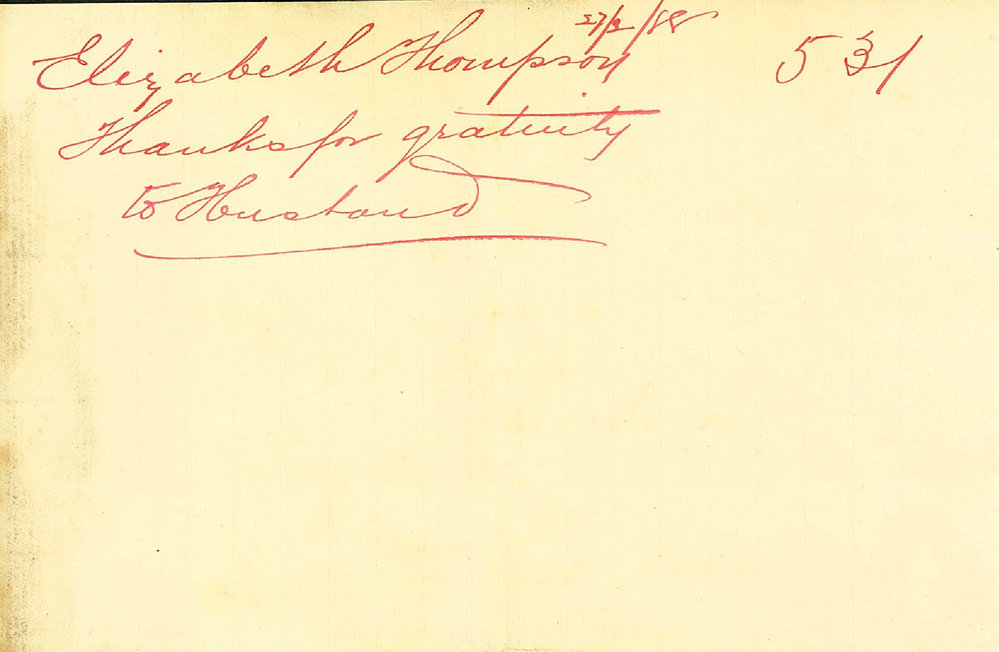 27/3/88
Elizabeth Thompson 531
Thanks for gratuity
to Husband